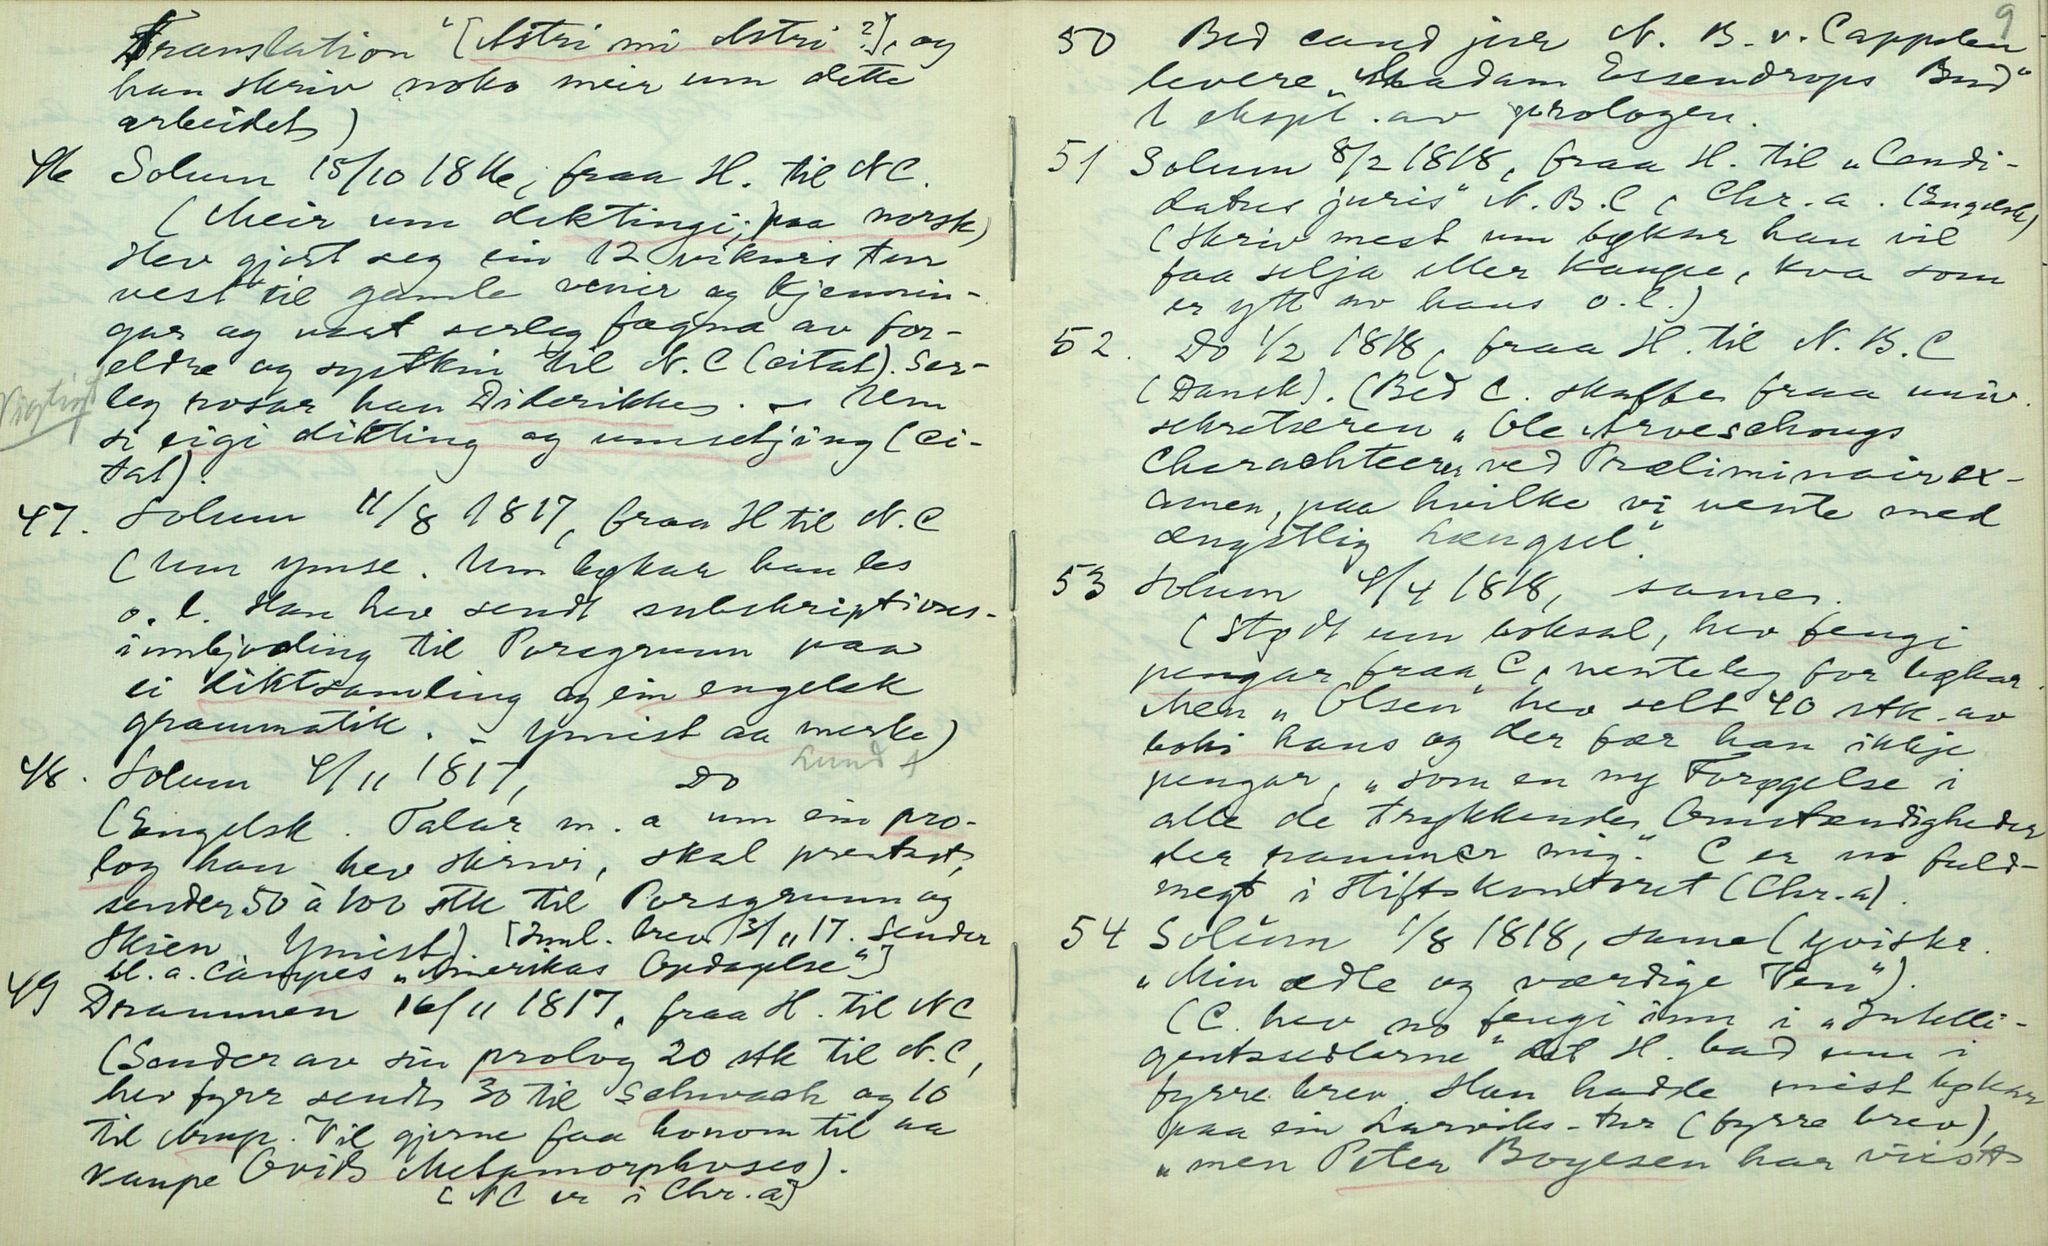 Translation" [Astri mi Astri ?], og
han skriv noko meir um dette
arbeidet)
46 Solum 15/10 1816, fraa H. til NC.
(Meir um diktingi, paa norsk)
Hev gjort seg ein 12 vikurs tur
vest til gamle venir og kjennin-
gar og vart serleg fagna av for-
eldre og systkin til N. C (citat). Ser-
Vigtigt
leg rosar han Diderikke. – Um
si eigi dikting og umsetjing (ci-
tat).
47. Solum 11/8 1817, fraa H til N. C
(Um ymse. Um bøkar han les
o. l. Han hev sendt subskriptions-
innbjoding til Porsgrunn paa
ei diktsamling og ein engelsk
grammatik. – Ymist aa merke)
Lund
48. Solum 4/11 1817, Do
(Engelsk. Talar m. a um ein pro-
log han hev skrivi, skal prentast,
sender 50 à 100 stk til Porsgrunn og
Skien. Ymist) [Inml. brev 13/11 17. Sender
bl. a. Campes „Amerikas Opdagelse"]
49 Drammen 16/11 1817, fraa H. til NC
(Sender av sin prolog 20 stk til N. C,
hev fyrr sendt 30 til Schwach og 10
til Arup. Vil gjerne faa honom til aa
kaupe Ovids Metamorphoses).
[NC er i Chr.a]
9
50 Bed cand jur N. B. v. Cappelen
levere „Madam Essendrops Bud"
1 ekspl. av prologen.
51 Solum 8/2 1818, fraa H. til „Candi-
datus juris" N. B. C, Chr.a. (Engelsk)
(Skriv mest um bøkar han vil
faa selja eller kaupe, kva som
er ytt av hans o. l.)
52. Do 1/2 1818, fraa H. til N. B. C
(Dansk). (Bed C. skaffe fraa univ.
sekretæren „Ole Arveschougs
Charachteerer ved Præliminairex-
amen, paa hvilke vi vente med
ængstlig Længsel."
53 Solum 4/4 1818, same.
(Stødt um boksal, hev fengi
pengar fraa C, venteleg for bøkar.
Men „Olsen" hev selt 40 stk. av
boki hans og der fær han ikkje
pengar, „som en ny Forøgelse i
alle de trykkende Omstændigheder
der rammer mig." C er no fuld-
megt i Stiftskontoret (Chr.a).
54 Solum 1/8 1818, same (yviskr.
„Min ædle og værdige Ven").
(C. hev no fengi inn i „Intelli-
gentssedlerne" det H. bad um i
fyrre brev. Han hadde mist bøkar
paa ein Larviks-tur (fyrre brev),
„men Peter Boyesen har viist